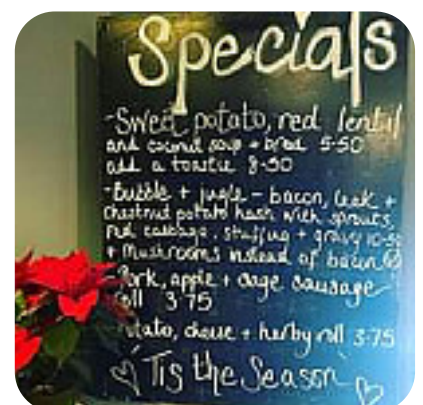 Specials
-Sweet potato, red lentil
and coconut soup + bread 5-50
add a toastie 8-50
-Bubble + jugle - bacon, leek +
chestnut potato hash with sprouts,
red cabbage, stuffing + gravy 10-50
+ mushrooms instead of bacon
Pork, apple + sage sausage
roll 3-75
potato, cheese + herby roll 3-75
'Tis the Season